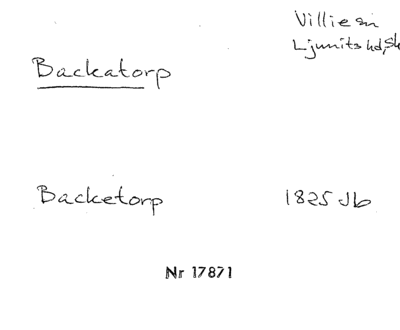 Villie sn
Ljunits hd, Sk
Backatorp
Backetorp 1825 Jb
Nr 17871